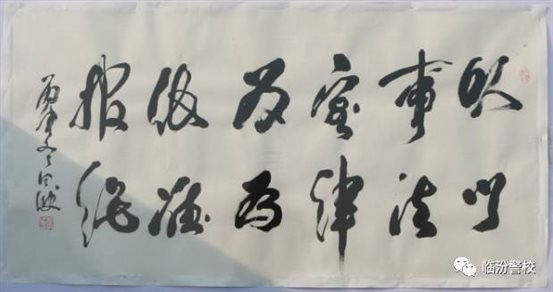 以事实为依据
以法律为准绳
临汾警校